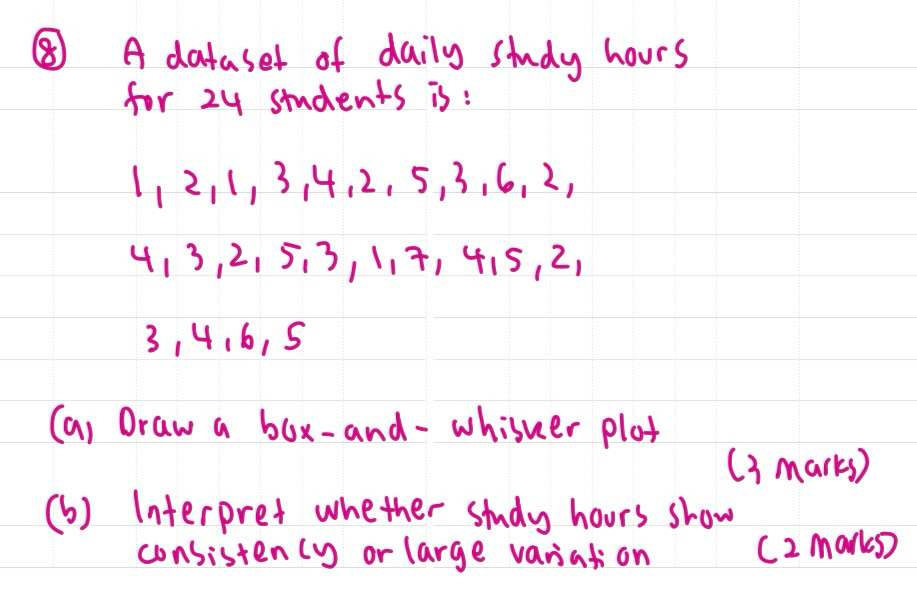 ⑧ A dataset of daily study hours
for 24 students is:
1, 2, 1, 3, 4, 2, 5, 3, 6, 2,
4, 3, 2, 5, 3, 1, 7, 4, 5, 2,
3, 4, 6, 5
(a) Draw a box-and-whisker plot
(3 marks)
(b) Interpret whether study hours show
consistency or large variation (2 marks)